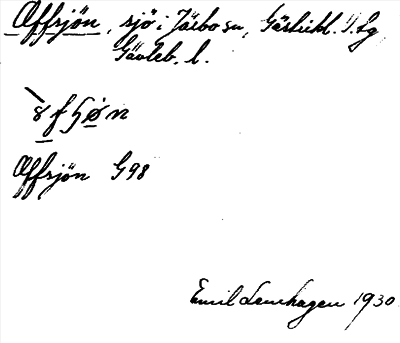 Öffsjön, sjö i Järbo sn, Gästrikl. S.Lg
Gävleb. l.
Öffsjön G98
Emil Lenhagen 1930